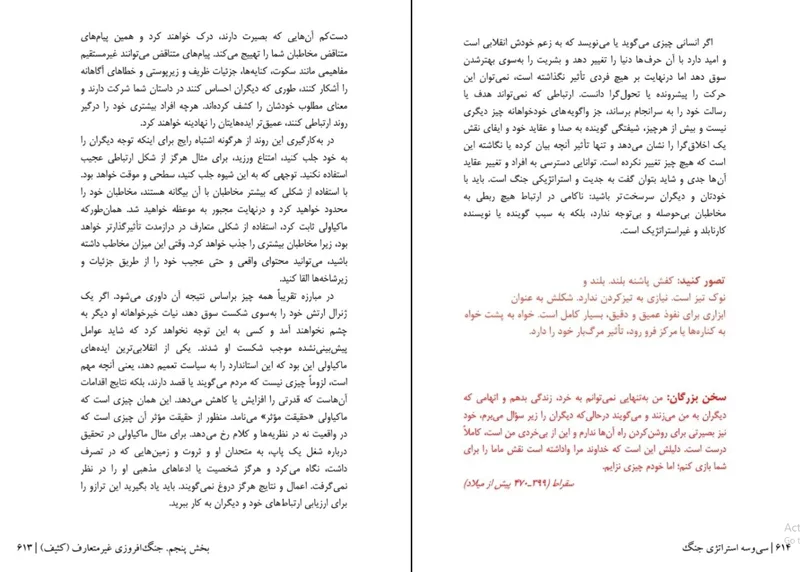 دست‌کم آن‌هایی که بصیرت دارند، درک خواهند کرد و همین پیام‌های
متناقض مخاطبان شما را تهییج می‌کند. پیام‌های متناقض می‌توانند غیرمستقیم
مفاهیمی مانند سکوت، کنایه‌ها، جزئیات ظریف و زیرپوستی و خطاهای آگاهانه
را آشکار کنند، طوری که دیگران احساس کنند در داستان شما شرکت دارند و
معنای مطلوب خودشان را کشف کرده‌اند. هرچه افراد بیشتری خود را درگیر
روند ارتباطی کنند، عمیق‌تر ایده‌هایتان را نهادینه خواهند کرد.
در به‌کارگیری این روند از هرگونه اشتباه رایج برای اینکه توجه دیگران را
به خود جلب کنید، امتناع ورزید، برای مثال هرگز از شکل ارتباطی عجیب
استفاده نکنید. توجهی که به این شیوه جلب کنید، سطحی و موقت خواهد بود.
با استفاده از شکلی که بیشتر مخاطبان با آن بیگانه هستند، مخاطبان خود را
محدود خواهید کرد و درنهایت مجبور به موعظه خواهید شد. همان‌طورکه
ماکیاولی ثابت کرد، استفاده از شکلی متعارف در درازمدت تأثیرگذارتر خواهد
بود، زیرا مخاطبان بیشتری را جذب خواهد کرد. وقتی این میزان مخاطب داشته
باشید، می‌توانید محتوای واقعی و حتی عجیب خود را از طریق جزئیات و
زیرشاخه‌ها القا کنید.
در مبارزه تقریباً همه چیز براساس نتیجه آن داوری می‌شود. اگر یک
ژنرال ارتش خود را به‌سوی شکست سوق دهد، نیات خیرخواهانه او دیگر به
چشم نخواهند آمد و کسی به این توجه نخواهد کرد که شاید عوامل
پیش‌بینی‌نشده موجب شکست او شدند. یکی از انقلابی‌ترین ایده‌های
ماکیاولی این بود که این استاندارد را به سیاست تعمیم دهد، یعنی آنچه مهم
است، لزوماً چیزی نیست که مردم می‌گویند یا قصد دارند، بلکه نتایج اقدامات
آن‌هاست که قدرتی را افزایش یا کاهش می‌دهد. این همان چیزی است که
ماکیاولی «حقیقت مؤثر» می‌نامد. منظور از حقیقت مؤثر آن چیزی است که
در واقعیت نه در نظریه‌ها و کلام رخ می‌دهد. برای مثال ماکیاولی در تحقیق
درباره شغل یک پاپ، به متحدان او و ثروت و زمین‌هایی که در تصرف
داشت، نگاه می‌کرد و هرگز شخصیت یا ادعاهای مذهبی او را در نظر
نمی‌گرفت. اعمال و نتایج هرگز دروغ نمی‌گویند. باید یاد بگیرید این ترازو را
برای ارزیابی ارتباط‌های خود و دیگران به کار ببرید.
بخش پنجم. جنگ‌افروزی غیرمتعارف (کثیف) | ۶۱۳
اگر انسانی چیزی می‌گوید یا می‌نویسد که به زعم خودش انقلابی است
و امید دارد با آن حرف‌ها دنیا را تغییر دهد و بشریت را به‌سوی بهترشدن
سوق دهد اما درنهایت بر هیچ فردی تأثیر نگذاشته است، نمی‌توان این
حرکت را پیشرونده یا تحول‌گرا دانست. ارتباطی که نمی‌تواند هدف یا
رسالت خود را به سرانجام برساند، جز واگویه‌های خودخواهانه چیز دیگری
نیست و بیش از هرچیز، شیفتگی گوینده به صدا و عقاید خود و ایفای نقش
یک اخلاق‌گرا را نشان می‌دهد و تنها تأثیر آنچه بیان کرده یا نگاشته این
است که هیچ چیز تغییر نکرده است. توانایی دسترسی به افراد و تغییر عقاید
آن‌ها جدی و شاید بتوان گفت به جدیت و استراتژیکی جنگ است. باید با
خودتان و دیگران سرسخت‌تر باشید: ناکامی در ارتباط هیچ ربطی به
مخاطبان بی‌حوصله و بی‌توجه ندارد، بلکه به سبب گوینده یا نویسنده
کارنابلد و غیراستراتژیک است.
تصور کنید: کفش پاشنه بلند. بلند و
نوک تیز است. نیازی به تیزکردن ندارد. شکلش به عنوان
ابزاری برای نفوذ عمیق و دقیق، بسیار کامل است. خواه به پشت خواه
به کناره‌ها یا مرکز فرو رود، تأثیر مرگ‌بار خود را دارد.
سخن بزرگان: من به‌تنهایی نمی‌توانم به خرد، زندگی بدهم و اتهامی که
دیگران به من می‌زنند و می‌گویند درحالی‌که دیگران را زیر سؤال می‌برم، خود
نیز بصیرتی برای روشن‌کردن راه آن‌ها ندارم و این از بی‌خردی من است، کاملاً
درست است. دلیلش این است که خداوند مرا واداشته است نقش ماما را برای
شما بازی کنم؛ اما خودم چیزی نزایم.
سقراط (۳۹۹ـ۴۷۰ پیش از میلاد)
۶۱۴ | سی‌وسه استراتژی جنگ
Act
Go t